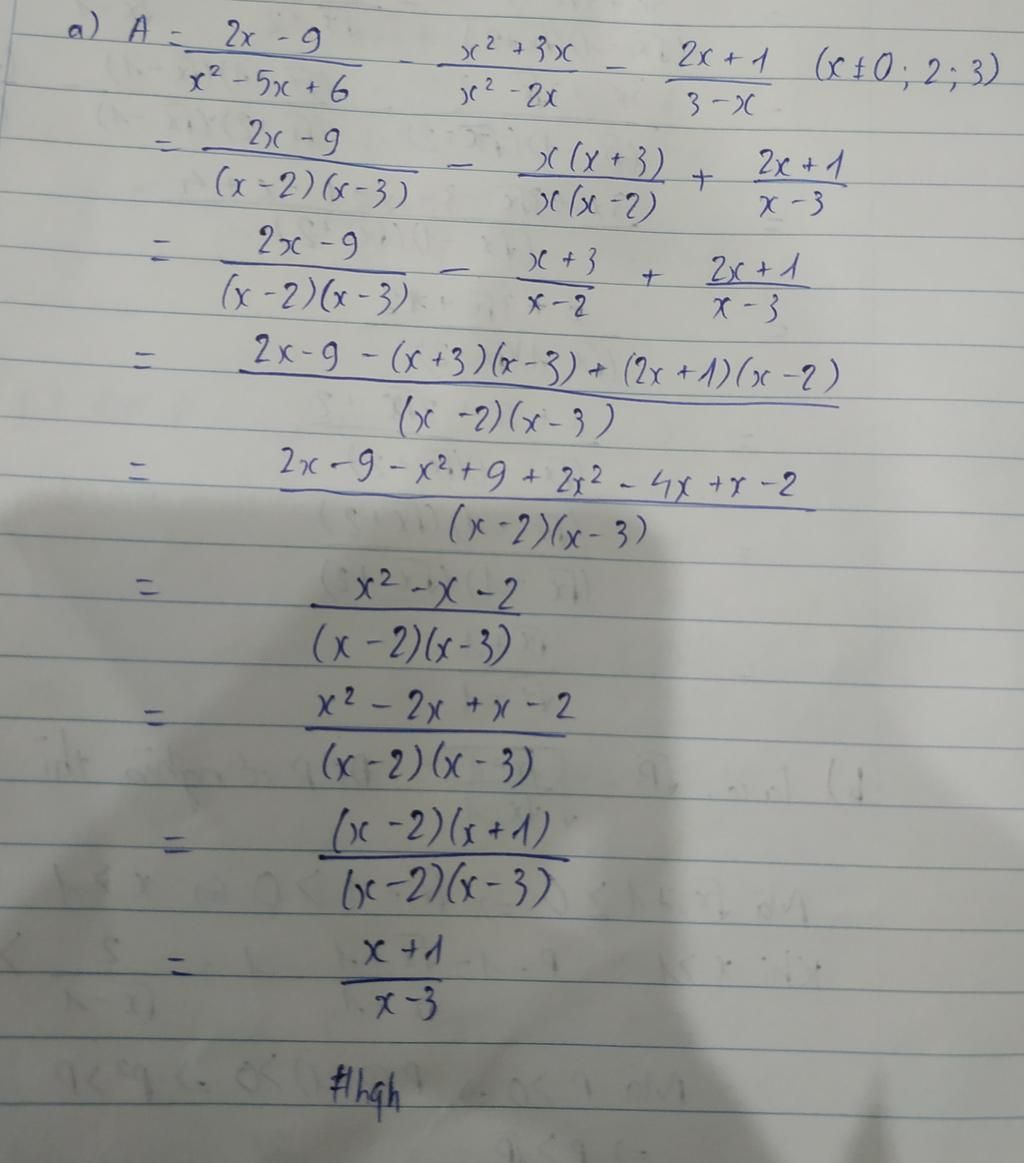 a) A = \frac{2x - 9}{x² - 5x + 6} - \frac{x² + 3x}{x² - 2x} - \frac{2x + 1}{3 - x} (x ≠ 0; 2; 3)
= \frac{2x - 9}{(x - 2)(x - 3)} - \frac{x(x + 3)}{x(x - 2)} + \frac{2x + 1}{x - 3}
= \frac{2x - 9}{(x - 2)(x - 3)} - \frac{x + 3}{x - 2} + \frac{2x + 1}{x - 3}
= \frac{2x - 9 - (x + 3)(x - 3) + (2x + 1)(x - 2)}{(x - 2)(x - 3)}
= \frac{2x - 9 - x² + 9 + 2x² - 4x + x - 2}{(x - 2)(x - 3)}
= \frac{x² - x - 2}{(x - 2)(x - 3)}
= \frac{x² - 2x + x - 2}{(x - 2)(x - 3)}
= \frac{(x - 2)(x + 1)}{(x - 2)(x - 3)}
= \frac{x + 1}{x - 3}